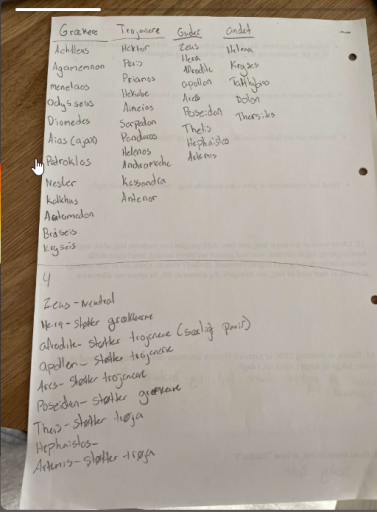 Grækere Trojanere Guder andet
Achilleus Hektor Zeus Helena
Agamemnon Paris Hera Kryses
menelaos Priamos Afrodite Talthybios
Odysseus Hekube apollon Dolon
Diomedes Aineias Ares Thersites
Aias (ajax) Sarpedon Poseidon
Patroklos Pandaros Thetis
Nestor Helenos Hephaistos
Kalkhas Andromache Artemis
Automedon Kassandra
Briseis Antenor
Kryseis
4
Zeus - neutral
Hera - støtter grækkerne
afrodite - støtter trojanere (særlig paris)
apollon - støtter trojanerne
Ares - støtter trojanere
Poseidon - støtter grækere
Thetis - støtter troja
Hephaistos -
Artemis - støtter troja